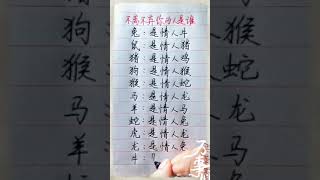 不离不弃你的人是谁
兔：是情人牛
鼠：是情人猪
猪：是情人鸡
狗：是情人猴
猴：是情人蛇
马：是情人龙
羊：是情人马
蛇：是情人兔
虎：是情人龙
龙：是情人兔
牛：
万事